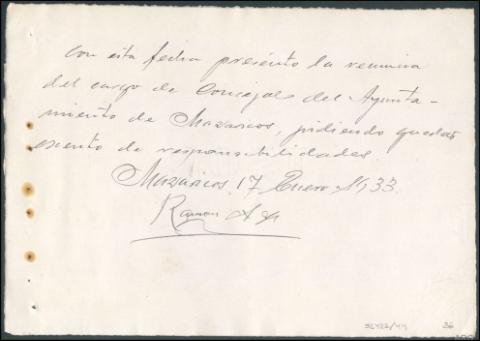 Con esta fecha presento la renuncia
del cargo de Concejal del Ayunta-
miento de Mazaricos, pidiendo quedar
exento de responsabilidades.
Mazaricos 17 Enero 1933.
Ramon
36